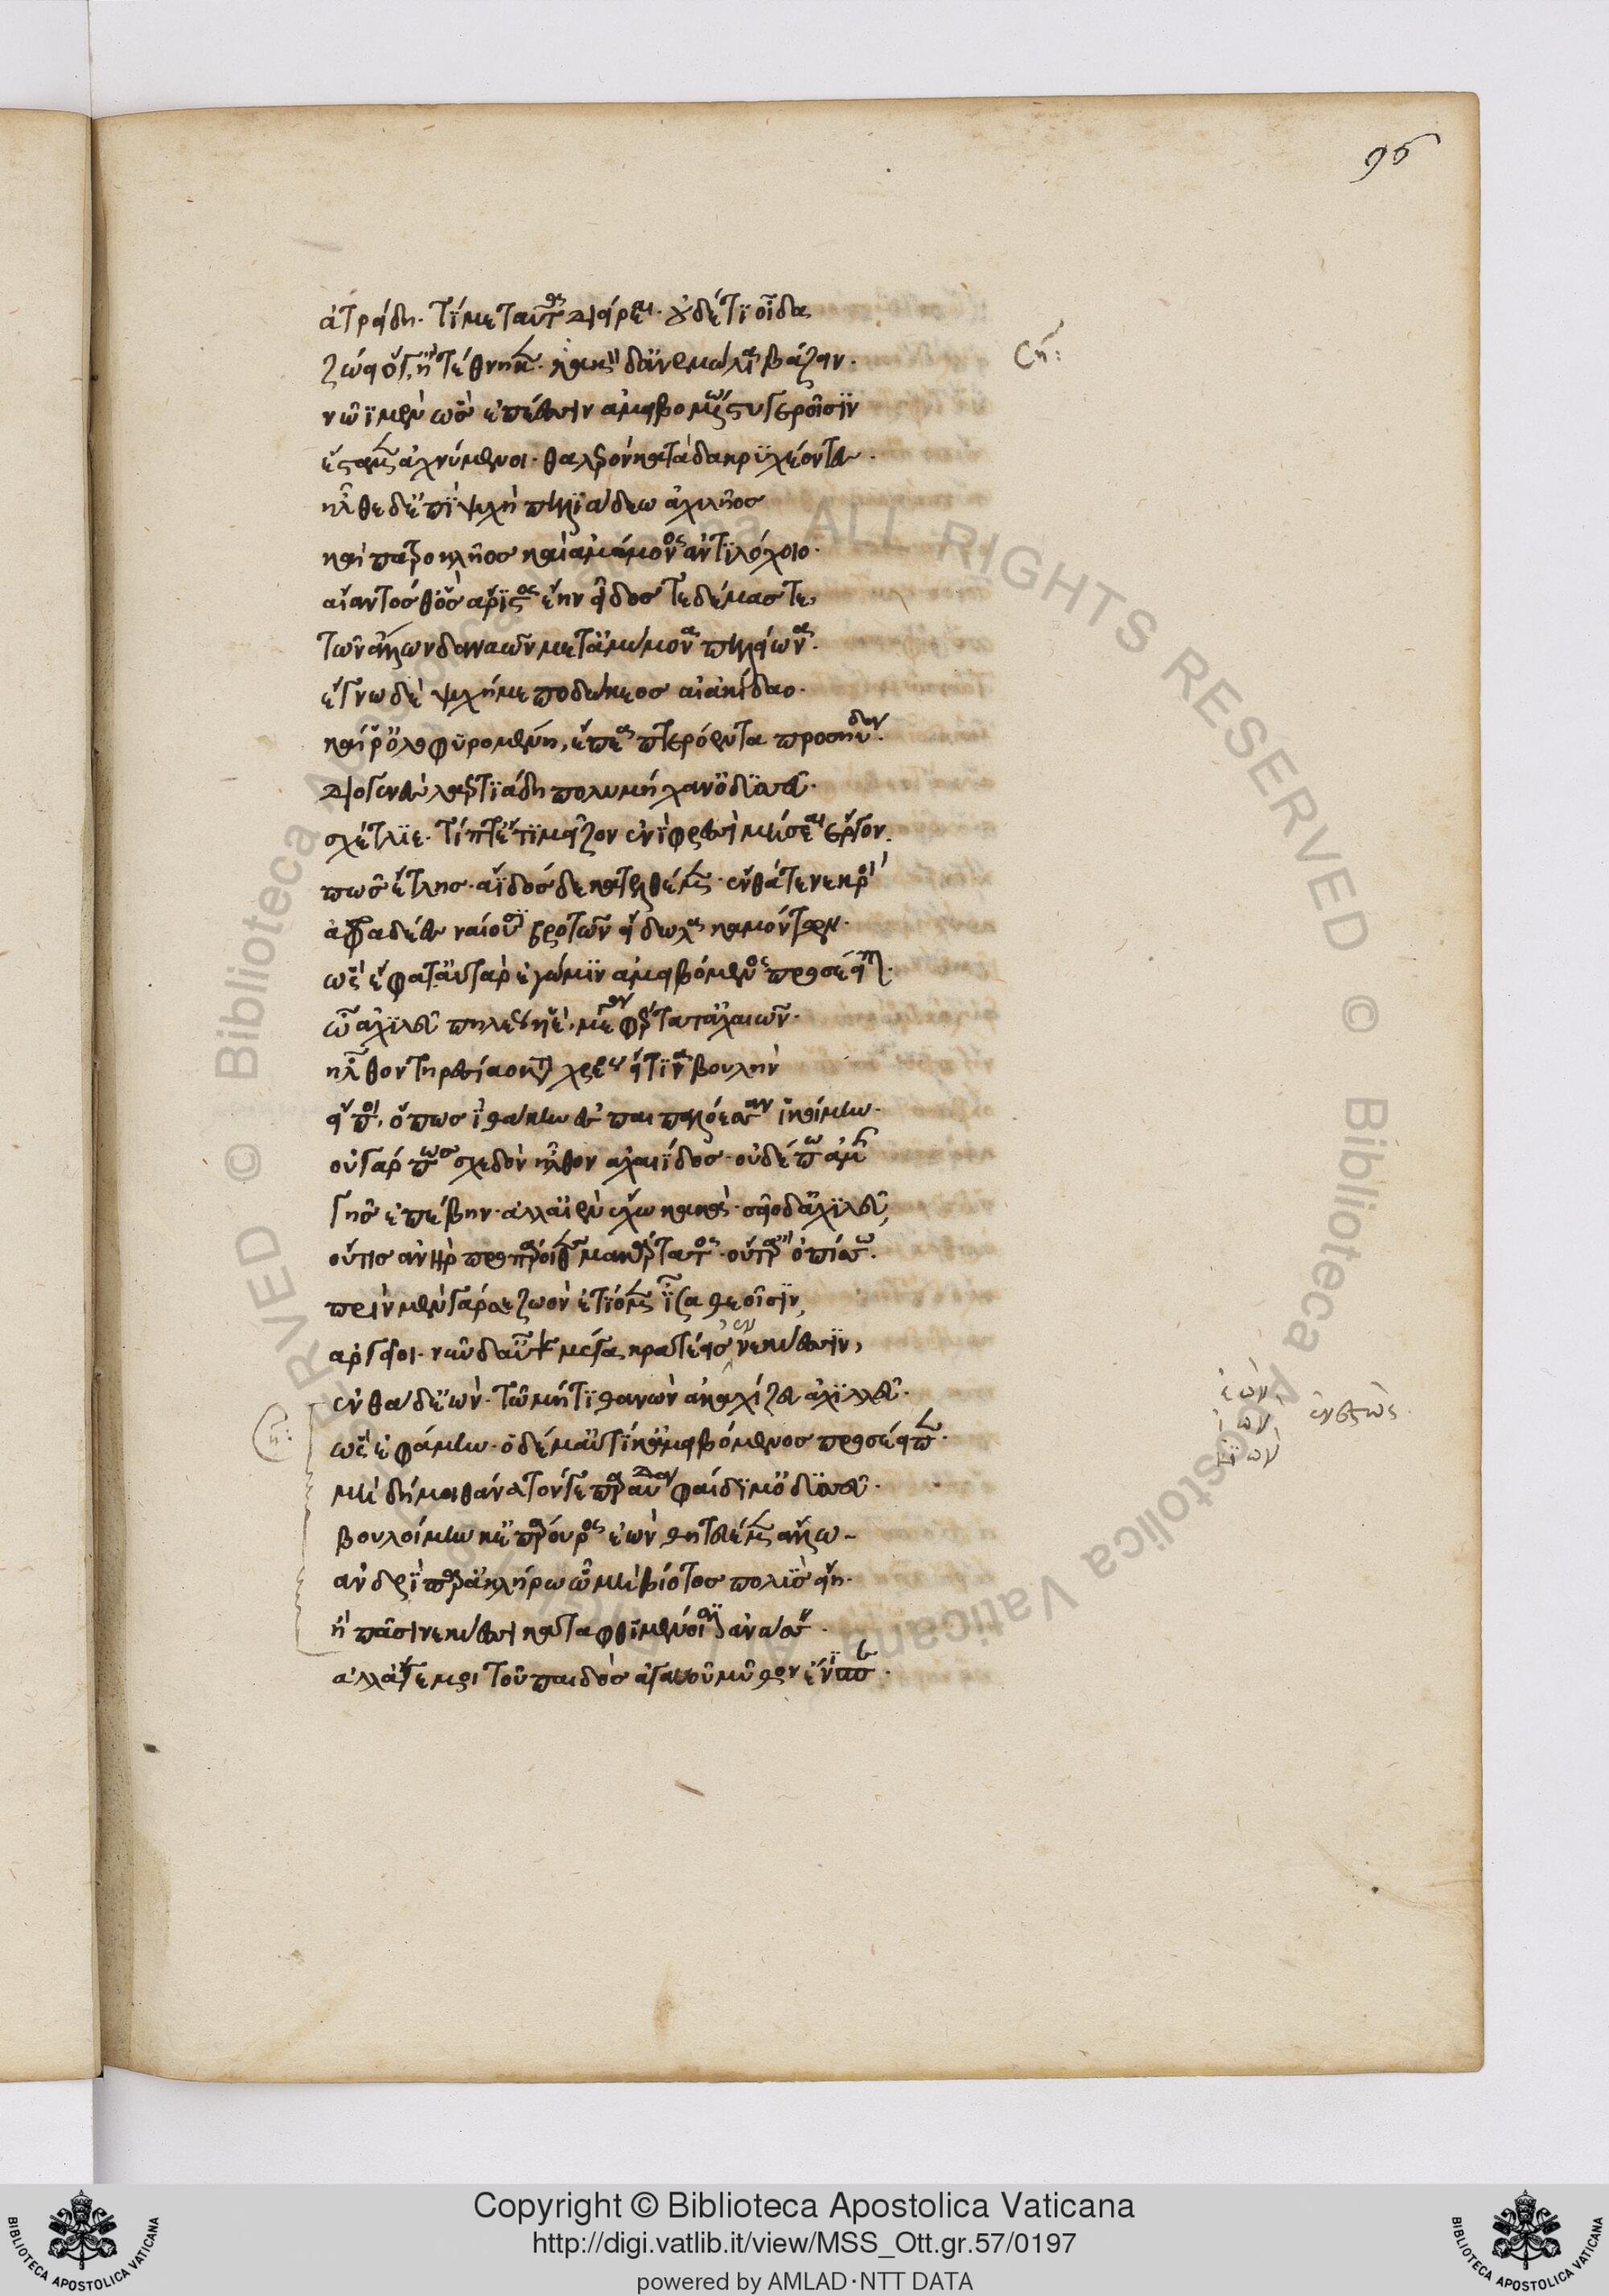 96
ἀτρείδη. τί με ταῦτα διείρεαι. οὐδέ τι οἶδα
ζώει ὅγ', ἢ τέθνηκε. κακὸν δ' ἀνεμώλια βάζειν.
νῶϊ μὲν ὣς ἐπέεσσιν ἀμειβομένω στυγεροῖσιν
ἕσταμεν ἀχνύμενοι. θαλερὸν κατὰ δάκρυ χέοντε.
ἦλθε δ' ἐπὶ ψυχὴ πηληϊάδεω ἀχιλῆος
καὶ πατροκλῆος καὶ ἀμύμονος ἀντιλόχοιο.
αἴαντός θ' ὃς ἄριστος ἔην εἶδός τε δέμας τε
τῶν ἄλλων δαναῶν μετ' ἀμύμονα πηλείωνα.
ἔγνω δὲ ψυχή με ποδώκεος αἰακίδαο.
καί ῥ' ὀλοφυρομένη, ἔπεα πτερόεντα προσηύδα.
διογενὲς λαερτιάδη πολυμήχαν' ὀδυσσεῦ.
σχέτλιε. τίπτ' ἔτι μεῖζον ἐνὶ φρεσὶ μήσεαι ἔργον.
πῶς ἔτλης ἄϊδός δε κατελθέμεν. ἔνθά τε νεκροὶ
ἀφραδέες ναίουσι βροτῶν εἴδωλα καμόντων.
ὣς ἔφατ' αὐτὰρ ἐγώ μιν ἀμειβόμενος προσέειπον.
ὦ ἀχιλεῦ πηλέος υἱέ, μέγα φέρτατ' ἀχαιῶν.
ἦλθον τειρεσίαο κατὰ χρέος εἴ τινα βουλὴν
εἴποι, ὅπως ἰθάκην ἐς παιπαλόεσσαν ἱκοίμην.
οὐ γάρ πως σχεδὸν ἦλθον ἀχαιΐδος. οὐδέ πω ἀμῆς
γῆς ἐπέβην. ἀλλ' αἰὲν ἔχω κακά. σεῖο δ' ἀχιλεῦ
οὔτις ἀνὴρ προπάροιθε μακάρτατος. οὔτ' ἄρ' ὀπίσσω.
πρὶν μὲν γάρ σε ζωὸν ἐτίομεν ἶσα θεοῖσιν
ἀργεῖοι. νῦν δ' αὖτε μέγα κρατέεις νεκύεσσιν
ἐνθάδ' ἐών. τῶ μήτι θανὼν ἀκαχίζευ ἀχιλλεῦ.
ὣς ἐφάμην. ὁ δέ μ' αὐτίκ' ἀμειβόμενος προσέειπε.
μὴ δή μοι θάνατόν γε παραύδα φαίδιμ' ὀδυσσεῦ.
βουλοίμην κ' ἐπάρουρος ἐὼν θητευέμεν ἄλλω
ἀνδρὶ παρ' ἀκλήρω ὧ μὴ βίοτος πολὺς εἴη.
ἢ πᾶσι νεκύεσσι καταφθιμένοισιν ἀνάσσειν.
ἀλλ' ἄγε μοι τοῦ παιδὸς ἀγαυοῦ μῦθον ἔνισπε.
ἐών
ἰών